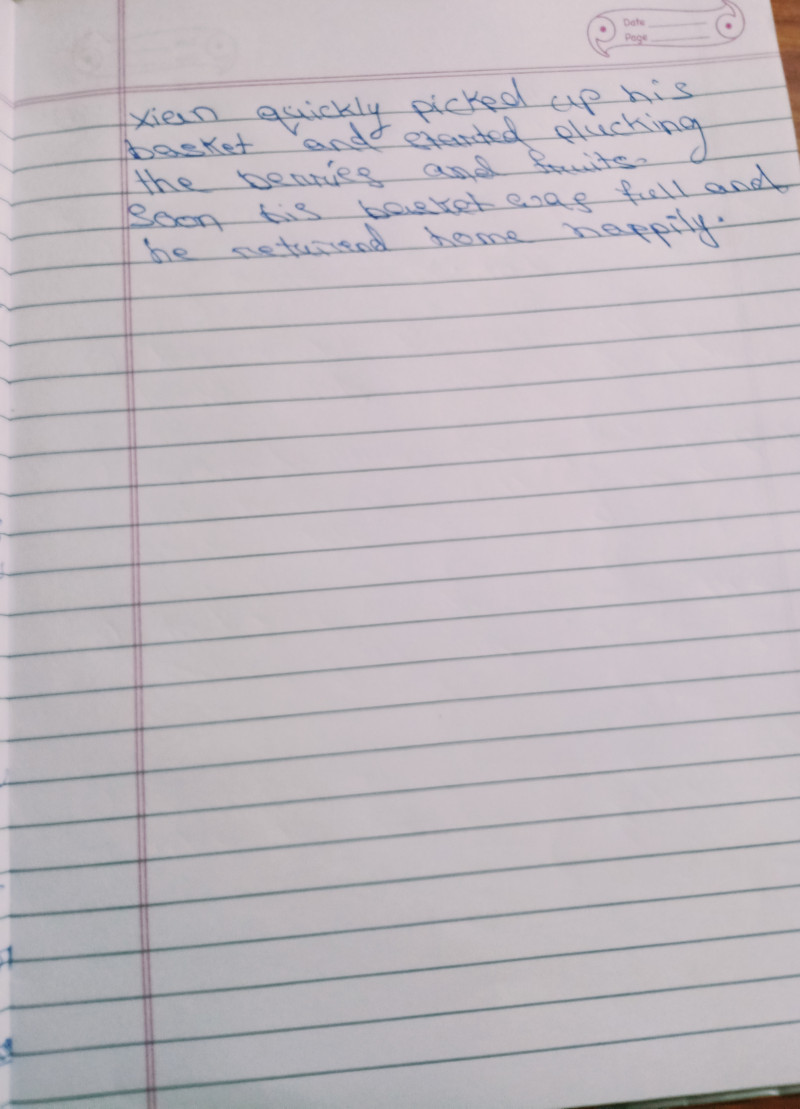 Date
Page
xien quickly picked up his
basket and started plucking
the berries and fruits.
Soon his basket was full and
he returend home happily.